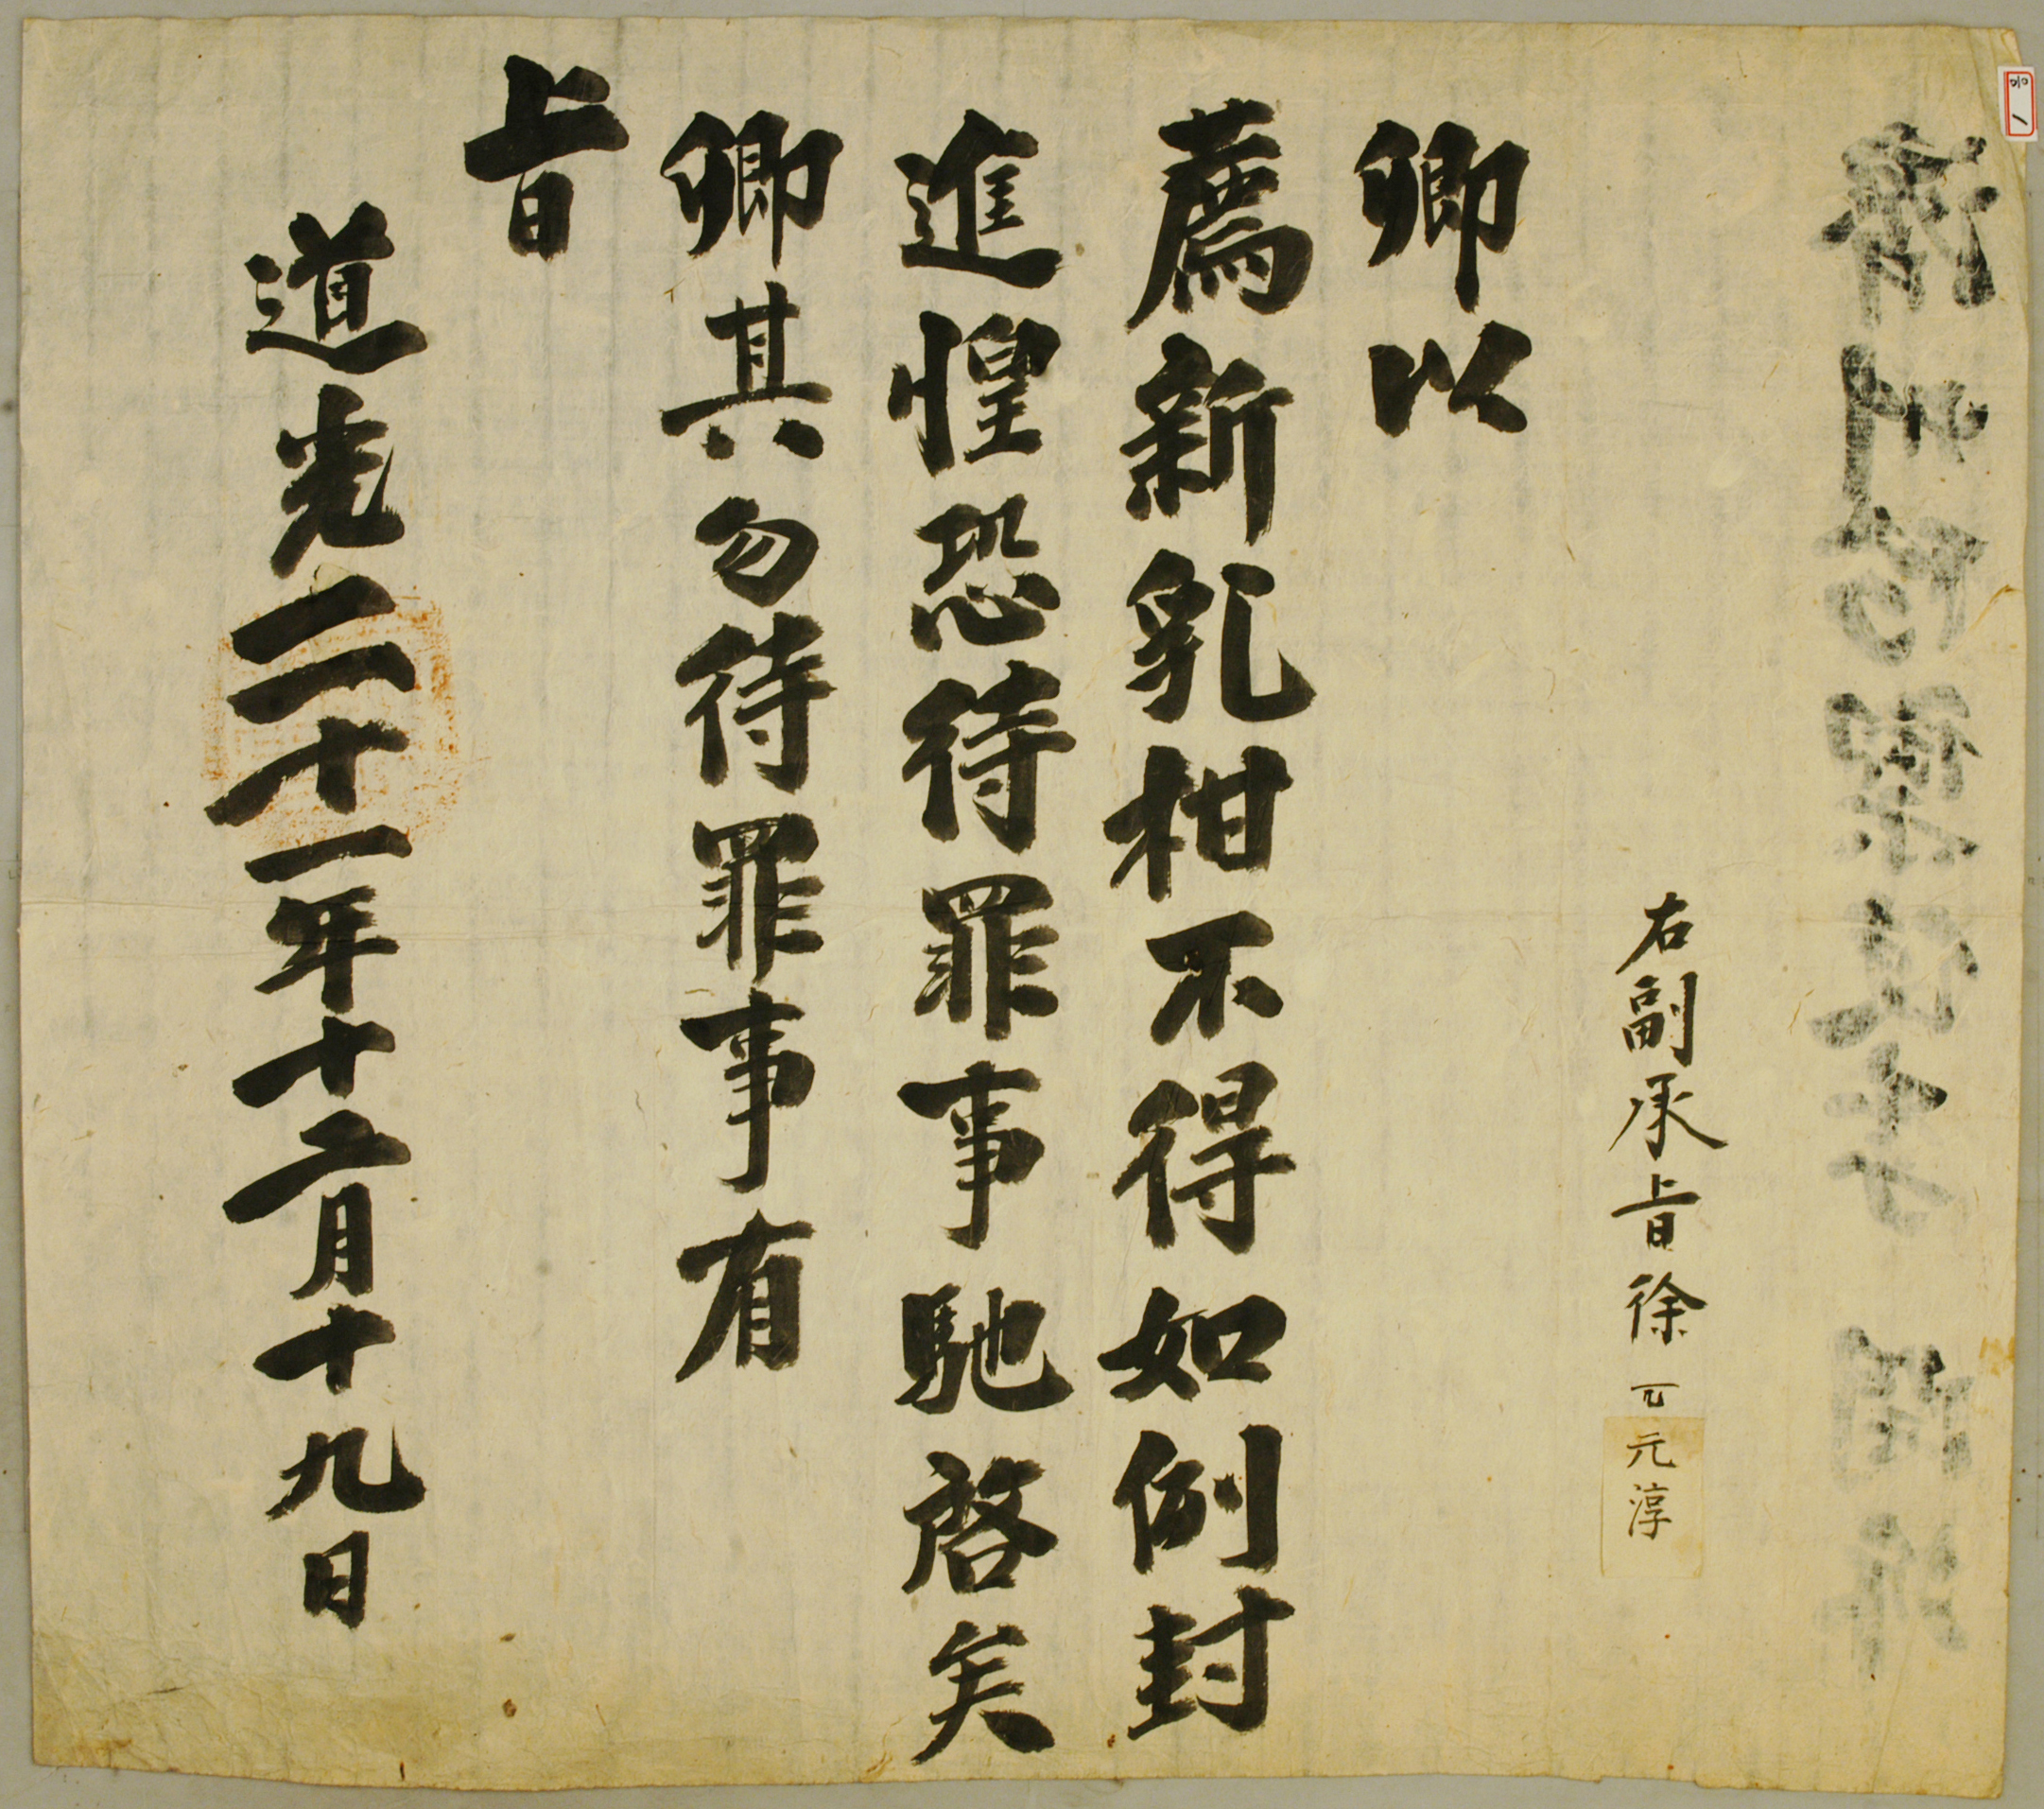 右副承旨徐
元淳
卿以
薦新乳柑不得如例封
進惶恐待罪事馳啓矣
卿其勿待罪事有
旨
道光二十一年十二月十九日